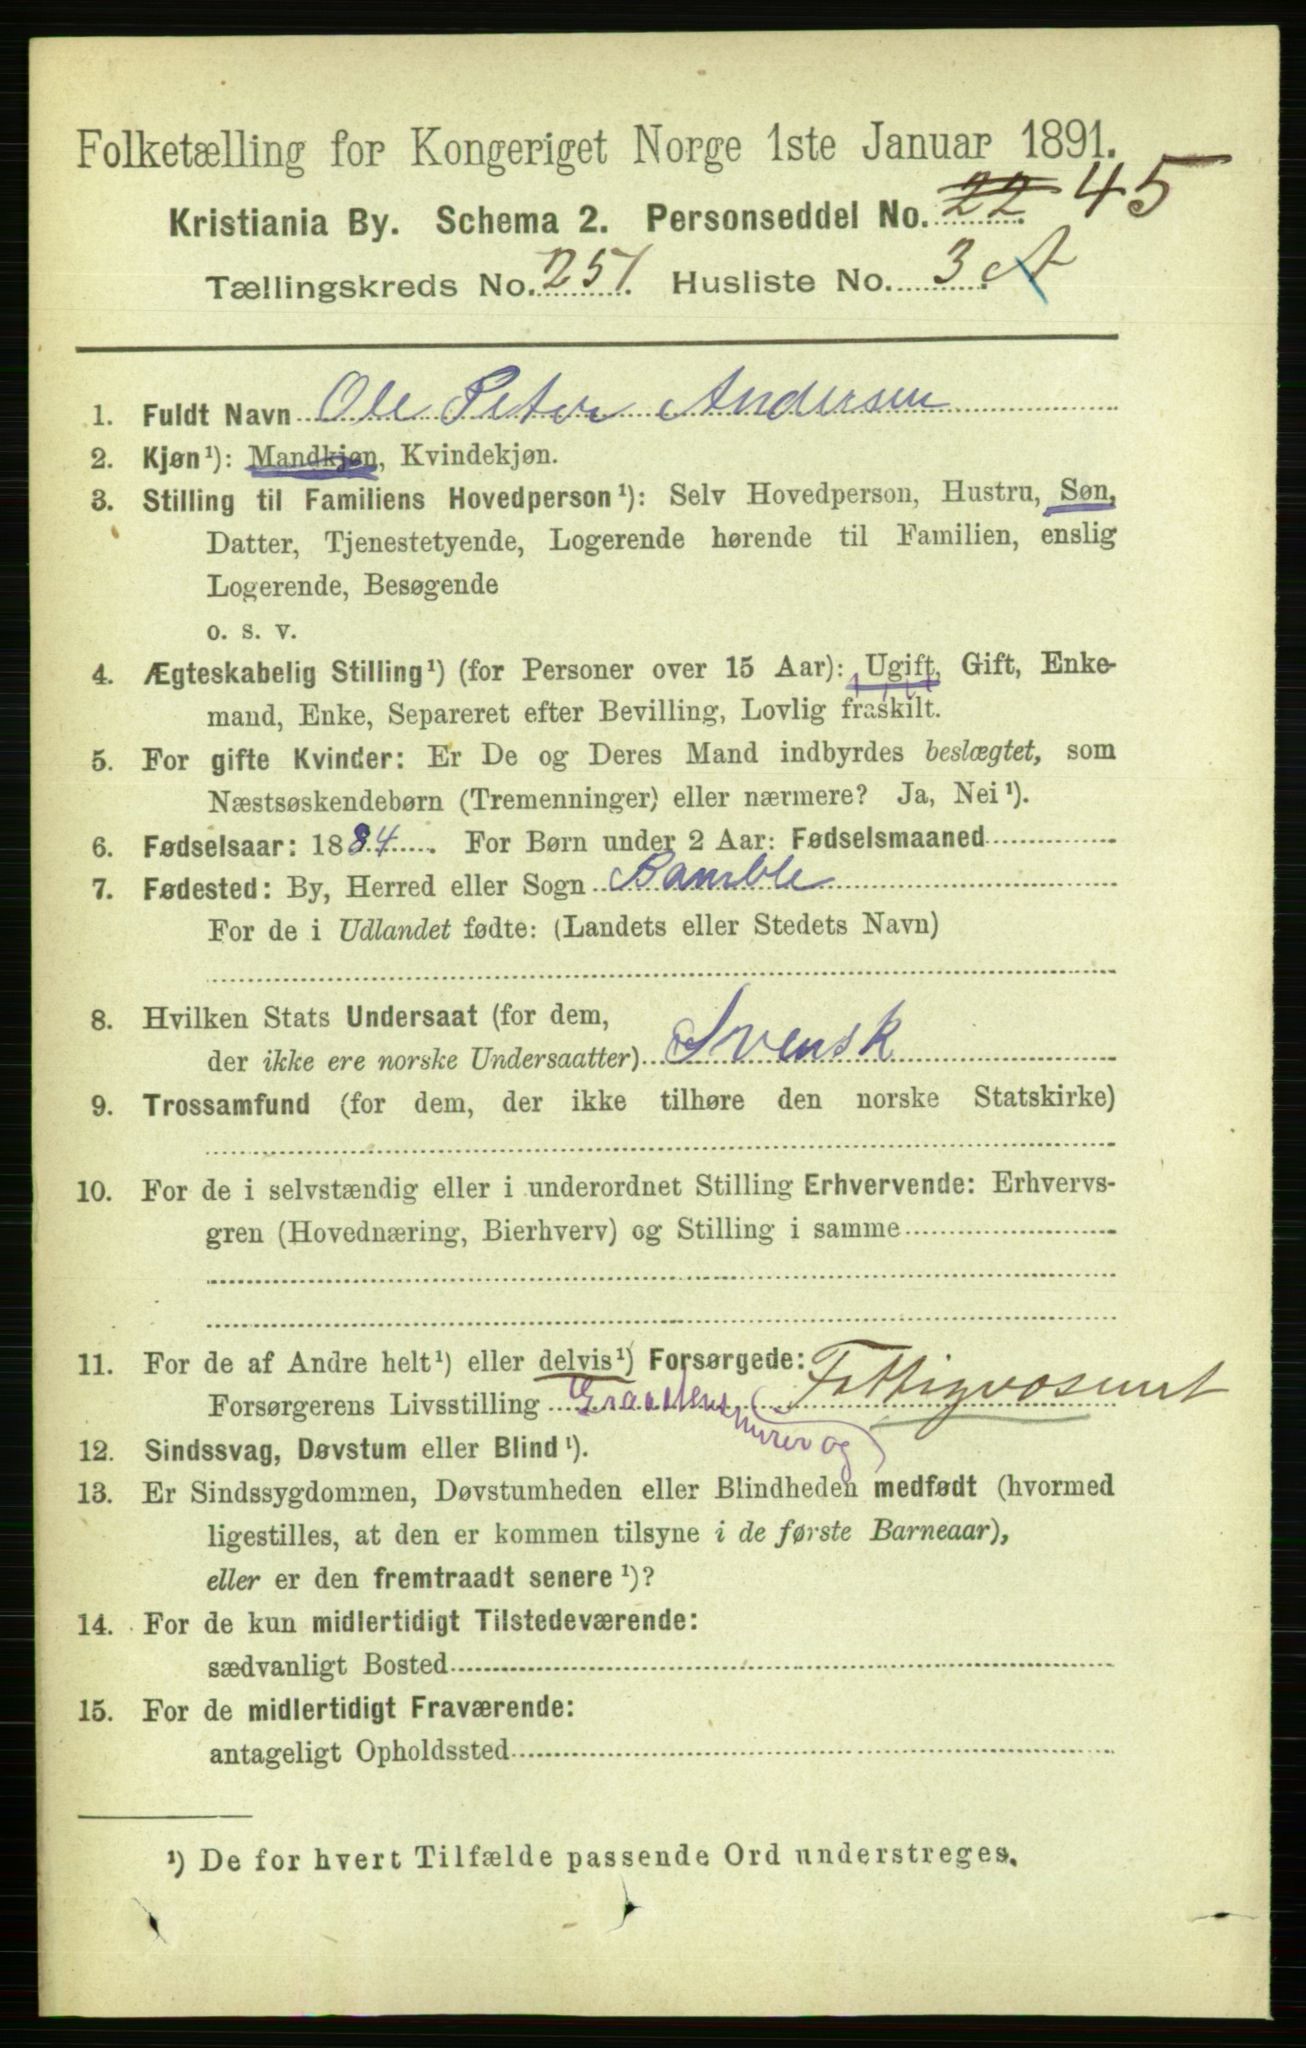 Folketælling for Kongeriget Norge 1ste Januar 1891.
Kristiania By. Schema 2. Personseddel No. 22 45
Tællingskreds No. 251 Husliste No. 3 A
1. Fuldt Navn Ole Peter Andersen
2. Kjøn¹): Mandkjøn, Kvindekjøn.
3. Stilling til Familiens Hovedperson¹): Selv Hovedperson, Hustru, Søn,
Datter, Tjenestetyende, Logerende hørende til Familien, enslig
Logerende, Besøgende
o. s. v.
4. Ægteskabelig Stilling¹) (for Personer over 15 Aar): Ugift, Gift, Enke-
mand, Enke, Separeret efter Bevilling, Lovlig fraskilt.
5. For gifte Kvinder: Er De og Deres Mand indbyrdes beslægtet, som
Næstsøskendebørn (Tremenninger) eller nærmere? Ja, Nei¹).
6. Fødselsaar: 1884. For Børn under 2 Aar: Fødselsmaaned
7. Fødested: By, Herred eller Sogn Bamble
For de i Udlandet fødte: (Landets eller Stedets Navn)
8. Hvilken Stats Undersaat (for dem,
der ikke ere norske Undersaatter) Svensk
9. Trossamfund (for dem, der ikke tilhøre den norske Statskirke)
10. For de i selvstændig eller i underordnet Stilling Erhvervende: Erhvervs-
gren (Hovednæring, Bierhverv) og Stilling i samme
11. For de af Andre helt¹) eller delvis¹) Forsørgede: Fattigvæsenet
Forsørgerens Livsstilling
og
12. Sindssvag, Døvstum eller Blind¹).
13. Er Sindssygdommen, Døvstumheden eller Blindheden medfødt (hvormed
ligestilles, at den er kommen tilsyne i de første Barneaar),
eller er den fremtraadt senere¹)?
14. For de kun midlertidigt Tilstedeværende:
sædvanligt Bosted
15. For de midlertidigt Fraværende:
antageligt Opholdssted
¹) De for hvert Tilfælde passende Ord understreges.